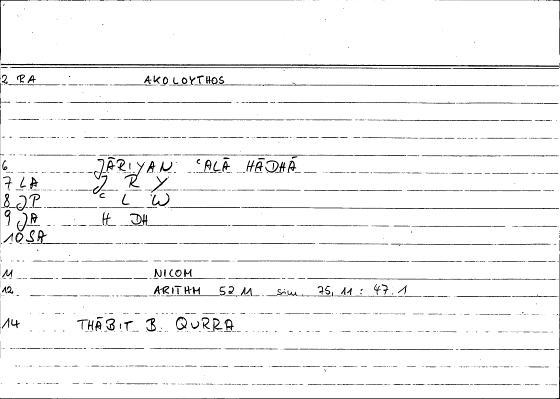 2 RA AKOLOYTHOS
6 JĀRIYAN ʿALĀ HĀDHĀ
7 LA J R Y
8 JP ʿ L W
9 JA H DH
10 SA
11 NICOM
12 ARITHM 52 11 sim. 75, 11 : 47. 1
14 THĀBIT B. QURRA